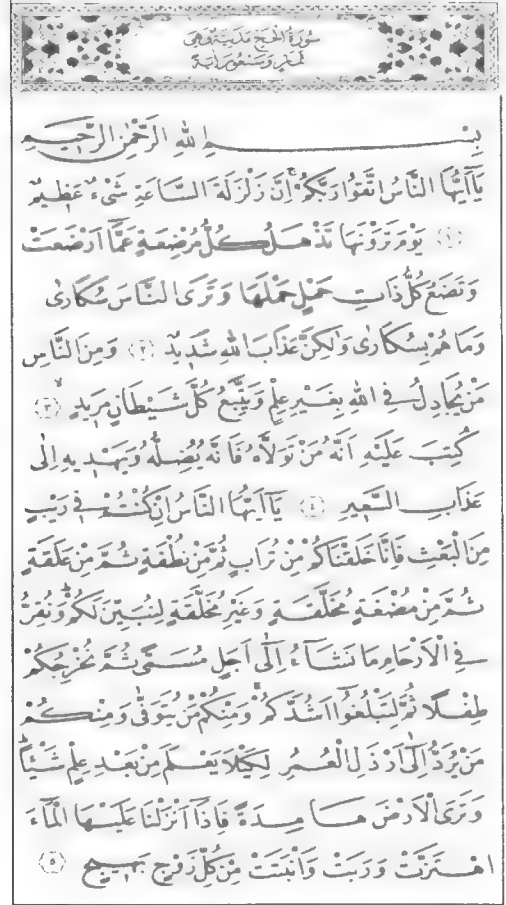 سُورَةُ الْحَجِّ مَدَنِيَّةٌ وَهِىَ
ثَمَانٍ وَسَبْعُونَ اٰيَةً
بِسْمِ اللهِ الرَّحْمٰنِ الرَّحِيمِ
يَٓا اَيُّهَا النَّاسُ اتَّقُوا رَبَّكُمْۚ اِنَّ زَلْزَلَةَ السَّاعَةِ شَىْءٌ عَظِيمٌ
﴿١﴾ يَوْمَ تَرَوْنَهَا تَذْهَلُ كُلُّ مُرْضِعَةٍ عَمَّٓا اَرْضَعَتْ
وَتَضَعُ كُلُّ ذَاتِ حَمْلٍ حَمْلَهَا وَتَرَى النَّاسَ سُكَارٰى
وَمَا هُمْ بِسُكَارٰى وَلٰكِنَّ عَذَابَ اللهِ شَدِيدٌ ﴿٢﴾ وَمِنَ النَّاسِ
مَنْ يُجَادِلُ فِى اللهِ بِغَيْرِ عِلْمٍ وَيَتَّبِعُ كُلَّ شَيْطَانٍ مَرِيدٍۙ ﴿٣﴾
كُتِبَ عَلَيْهِ اَنَّهُ مَنْ تَوَلَّاهُ فَاَنَّهُ يُضِلُّهُ وَيَهْدِيهِ اِلٰى
عَذَابِ السَّعِيرِ ﴿٤﴾ يَٓا اَيُّهَا النَّاسُ اِنْ كُنْتُمْ فِى رَيْبٍ
مِنَ الْبَعْثِ فَاِنَّا خَلَقْنَاكُمْ مِنْ تُرَابٍ ثُمَّ مِنْ نُطْفَةٍ ثُمَّ مِنْ عَلَقَةٍ
ثُمَّ مِنْ مُضْغَةٍ مُخَلَّقَةٍ وَغَيْرِ مُخَلَّقَةٍ لِنُبَيِّنَ لَكُمْۜ وَنُقِرُّ
فِى الْاَرْحَامِ مَا نَشَٓاءُ اِلٰٓى اَجَلٍ مُسَمًّى ثُمَّ نُخْرِجُكُمْ
طِفْلًا ثُمَّ لِتَبْلُغُٓوا اَشُدَّكُمْۚ وَمِنْكُمْ مَنْ يُتَوَفّٰى وَمِنْكُمْ
مَنْ يُرَدُّ اِلٰٓى اَرْذَلِ الْعُمُرِ لِكَيْلَا يَعْلَمَ مِنْ بَعْدِ عِلْمٍ شَيْئًاۜ
وَتَرَى الْاَرْضَ هَامِدَةً فَاِذَٓا اَنْزَلْنَا عَلَيْهَا الْمَٓاءَ
اهْتَزَّتْ وَرَبَتْ وَاَنْبَتَتْ مِنْ كُلِّ زَوْجٍ بَهِيجٍ ﴿٥﴾